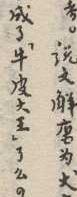 者。说文解磨为大
成了"牛皮大王"了么?